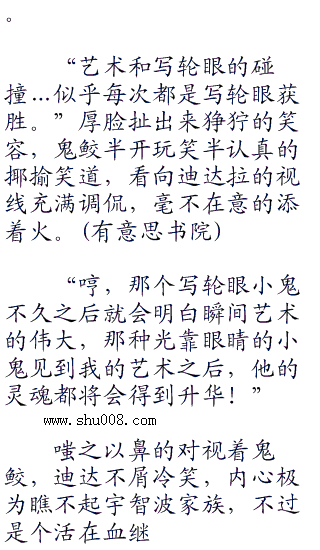 。
“艺术和写轮眼的碰
撞…似乎每次都是写轮眼获
胜。”厚脸扯出来狰狞的笑
容，鬼鲛半开玩笑半认真的
揶揄笑道，看向迪达拉的视
线充满调侃，毫不在意的添
着火。(有意思书院)
“哼，那个写轮眼小鬼
不久之后就会明白瞬间艺术
的伟大，那种光靠眼睛的小
鬼见到我的艺术之后，他的
灵魂都将会得到升华！”
www.shu008.com
嗤之以鼻的对视着鬼
鲛，迪达不屑冷笑，内心极
为瞧不起宇智波家族，不过
是个活在血继